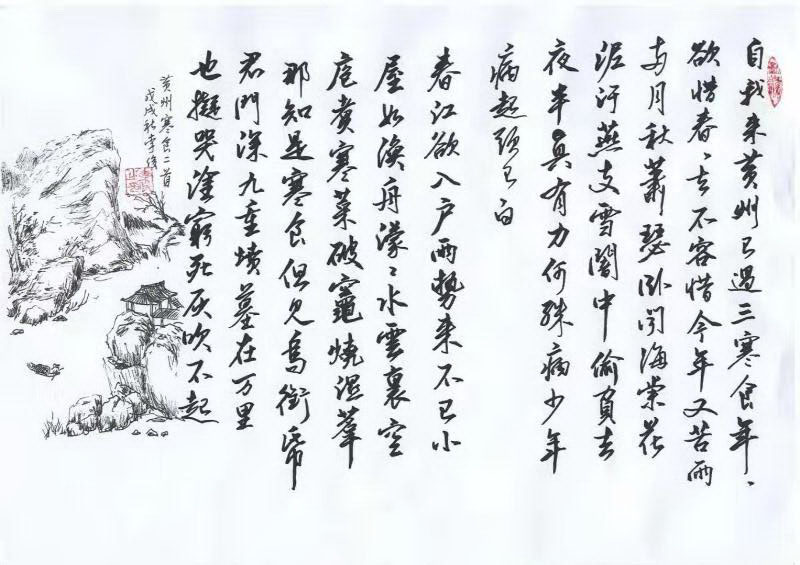 自我来黄州已過三寒食年、
欲惜春、去不容惜今年又苦雨
两月秋蕭瑟卧闻海棠花
泥汙燕支雪闇中偷負去
夜半真有力何殊病少年
病起頭已白
春江欲入户雨勢来不已小
屋如渔舟濛、水雲裏空
庖煮寒菜破竈燒湿葦
那知是寒食但見烏銜帋
君門深九重墳墓在万里
也擬哭塗窮死灰吹不起
黄州寒食二首
戊戌秋李